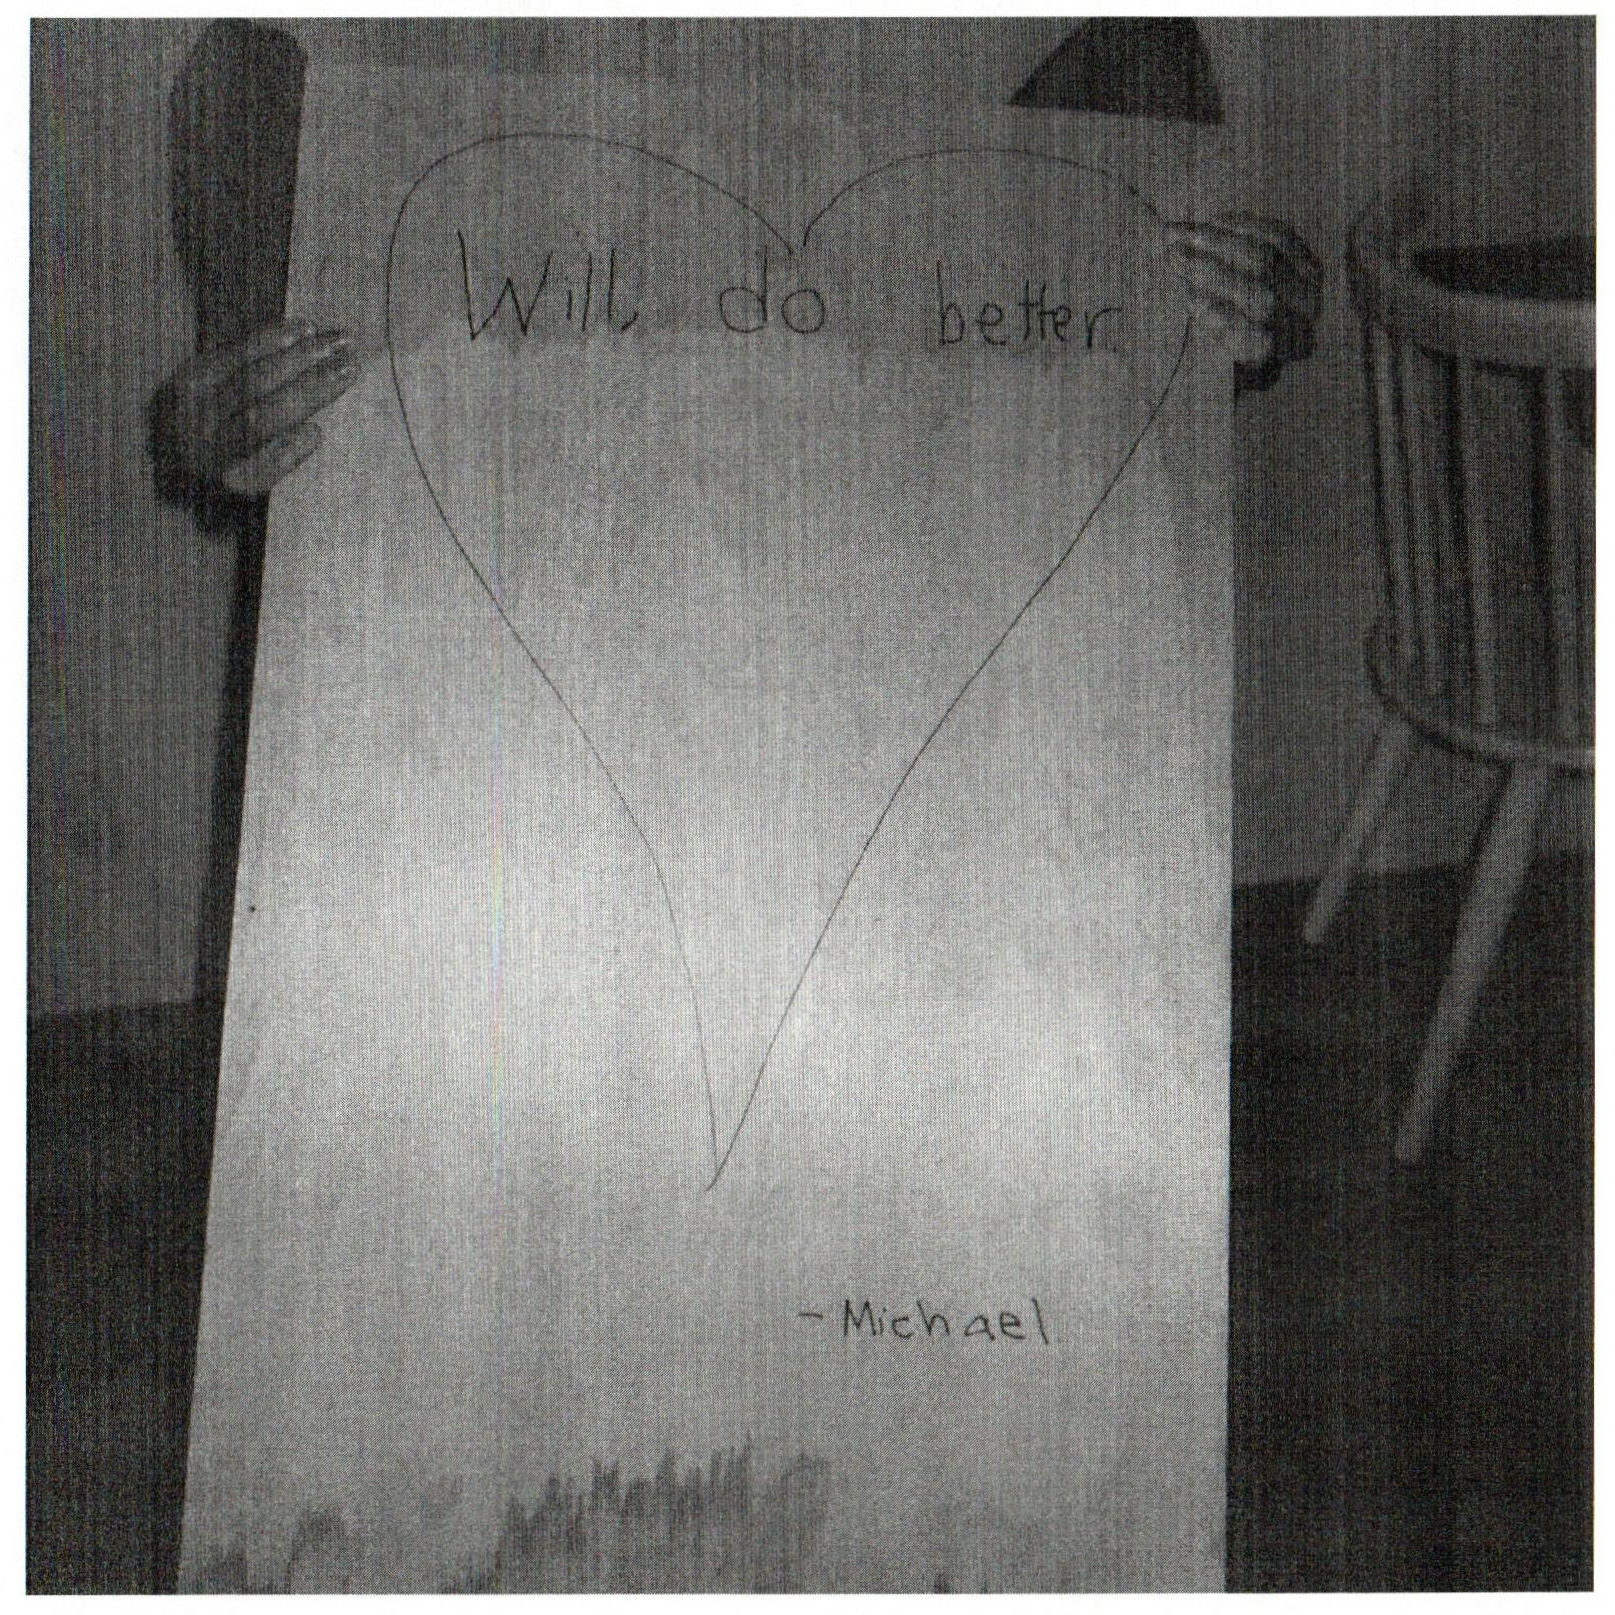 Will do better.
- Michael